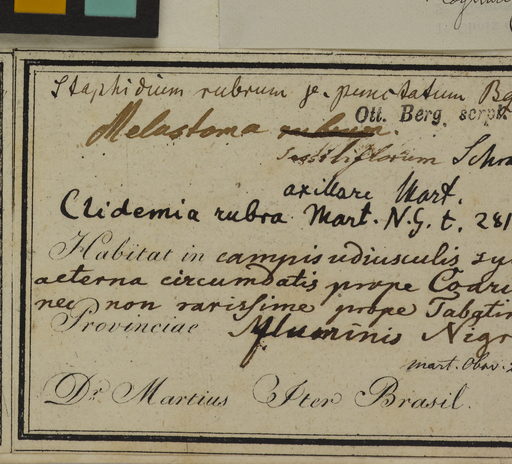 Staphidium rubrum β. punctatum Bg
Ott. Berg. script.
Melastoma rubrum.
sessiliflorum Schra
axillare Mart.
Clidemia rubra Mart. N.G. t. 281
Habitat in campis udiusculis sy
aeterna circumdatis prope Codru
nec non rarissime prope Tabatin
Provinciae fluminis Nigr
Mart. Obsv.
Dr. Martius Iter Brasil.